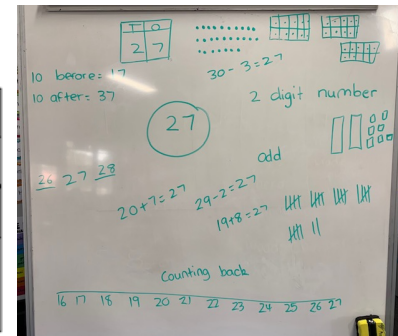 T O
2 7
30 - 3 = 27
10 before: 17
10 after: 37
2 digit number
27
odd
26 27 28
20+7=27
29-2=27
19+8=27
Counting back
16 17 18 19 20 21 22 23 24 25 26 27